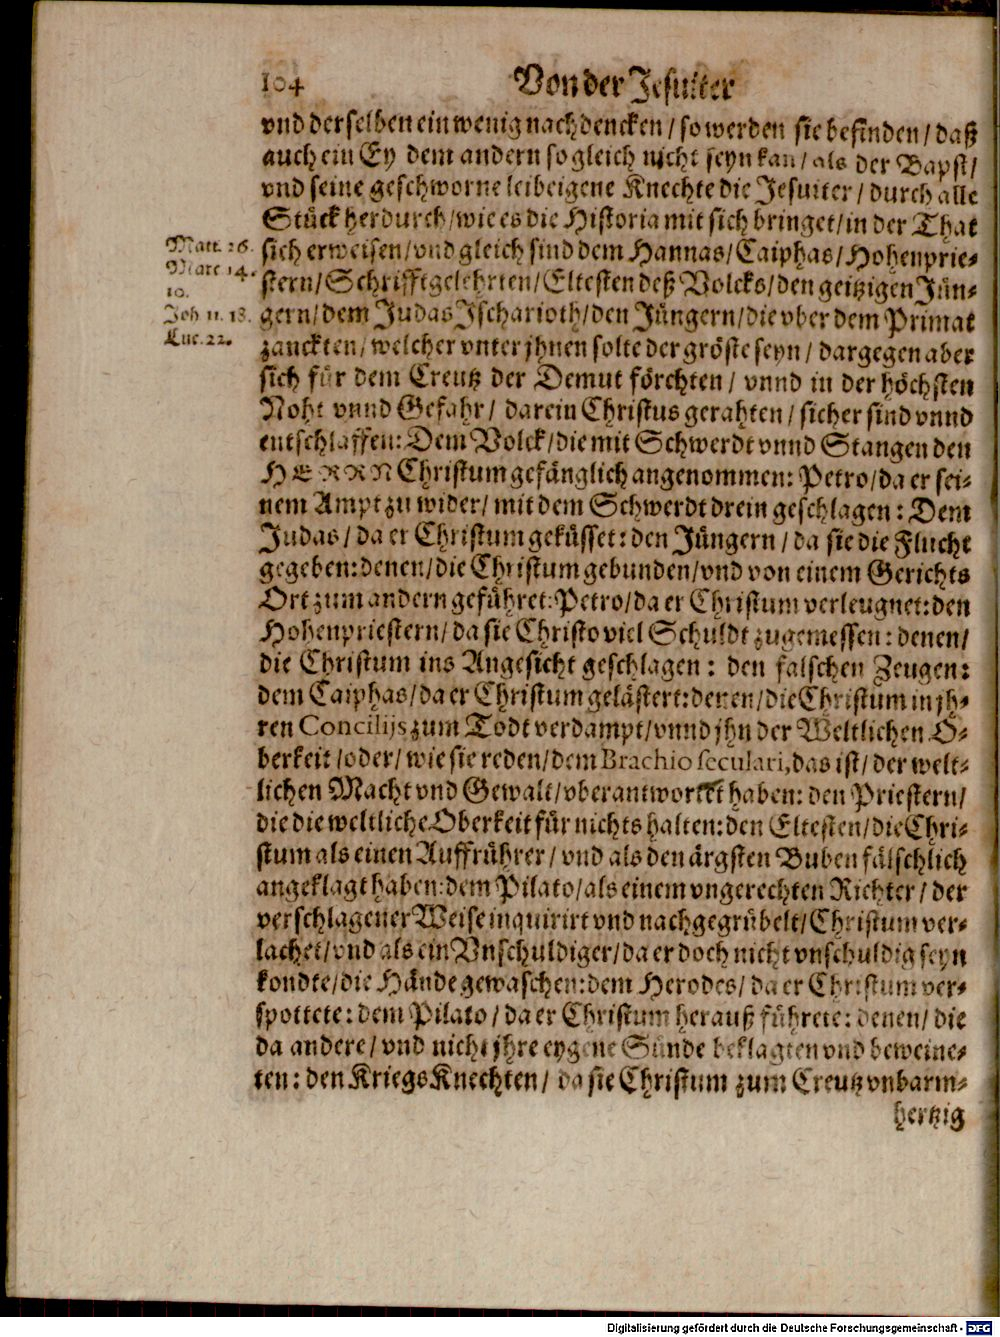 104 Von der Jesuiter
vnd derselben ein wenig nachdencken / so werden sie befinden / daß
auch ein Ey dem andern so gleich nicht seyn kan / als der Bapst /
vnd seine geschworne leibeigene Knechte die Jesuiter / durch alle
Stück herdurch / wie es die Historia mit sich bringet / in der That
sich erweisen / vnd gleich sind dem Hannas / Caiphas / Hohenprie-
stern / Schrifftgelehrten / Eltesten deß Volcks / den geitzigen Jün-
gern / dem Judas Jscharioth / den Jüngern / die vber dem Primat
zanckten / welcher vnter jhnen solte der gröste seyn / dargegen aber
sich für dem Creutz der Demut förchten / vnnd in der höchsten
Noht vnnd Gefahr / darein Christus gerahten / sicher sind vnnd
entschlaffen: Dem Volck / die mit Schwerdt vnnd Stangen den
HERRN Christum gefänglich angenommen: Petro / da er sei-
nem Ampt zu wider / mit dem Schwerdt drein geschlagen: Dem
Judas / da er Christum geküsset: den Jüngern / da sie die Flucht
gegeben: denen / die Christum gebunden / vnd von einem Gerichts
Ort zum andern geführet: Petro / da er Christum verleugnet: den
Hohenpriestern / da sie Christo viel Schuldt zugemessen: denen /
die Christum ins Angesicht geschlagen: den falschen Zeugen:
dem Caiphas / da er Christum gelästert: denen / die Christum in jh-
ren Concilijs zum Todt verdampt / vnnd jhn der Weltlichen O-
berkeit / oder / wie sie reden / dem Brachio seculari, das ist / der welt-
lichen Macht vnd Gewalt / vberantwortet haben: den Priestern /
die die weltliche Oberkeit für nichts halten: den Eltesten / die Chri-
stum als einen Auffrührer / vnd als den ärgsten Buben fälschlich
angeklagt haben: dem Pilato / als einem vngerechten Richter / der
verschlagener Weise inquirirt vnd nachgegrübelt / Christum ver-
lachet / vnd als ein Vnschuldiger / da er doch nicht vnschuldig seyn
kondte / die Hände gewaschen: dem Herodes / da er Christum ver-
spottete: dem Pilato / da er Christum herauß führete: denen / die
da andere / vnd nicht jhre eygene Sünde beklagten vnd beweine-
ten: den KriegsKnechten / da sie Christum zum Creutz vnbarm-
hertzig
Matt. 26.
Marc 14.
10.
Joh 11. 18.
Luc. 22.
Digitalisierung gefördert durch die Deutsche Forschungsgemeinschaft - DFG